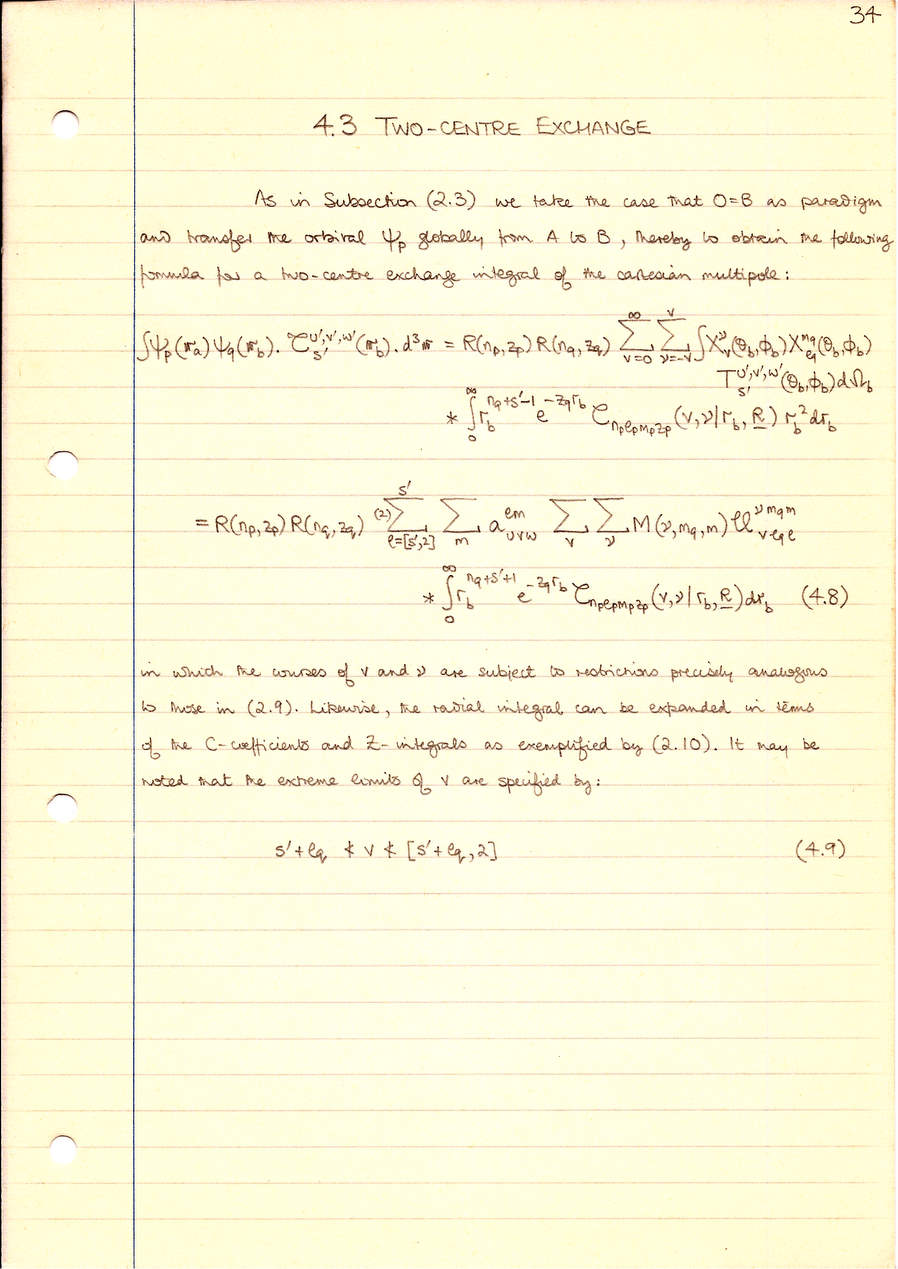 34
4.3 TWO-CENTRE EXCHANGE
As in Subsection (2.3) we take the case that O=B as paradigm
and transfer the orbital ψ_p globally from A to B, thereby to obtain the following
formula for a two-centre exchange integral of the cartesian multipole:
∫ψ_p(𝐫_a)ψ_q(𝐫_b).𝒯_{s'}^{u',v',w'}(𝐫_b).d³𝐫 = R(n_p,z_p)R(n_q,z_q) ∑_{v=0}^{∞} ∑_{ν=-v}^{v} ∫X_v^ν(θ_b,ϕ_b)X_{ℓq}^{m_q}(θ_b,ϕ_b)
T_{s'}^{u',v',w'}(θ_b,ϕ_b)dΩ_b
* ∫_0^∞ r_b^{n_q+s'-1} e^{-z_q r_b} 𝒞_{n_pℓ_pm_pz_p}(v,ν|r_b,R) r_b² dr_b
= R(n_p,z_p)R(n_q,z_q) ⁽²⁾∑_{ℓ=[s',2]}^{s'} ∑_m a_{uvw}^{ℓm} ∑_v ∑_ν M(ν,m_q,m) 𝒰_{vℓ_qℓ}^{νm_qm}
* ∫_0^∞ r_b^{n_q+s'+1} e^{-z_q r_b} 𝒞_{n_pℓ_pm_pz_p}(v,ν|r_b,R)dr_b (4.8)
in which the courses of v and ν are subject to restrictions precisely analogous
to those in (2.9). Likewise, the radial integral can be expanded in terms
of the C-coefficients and Z-integrals as exemplified by (2.10). It may be
noted that the extreme limits of v are specified by:
s'+ℓ_q ≮ v ≮ [s'+ℓ_q,2] (4.9)